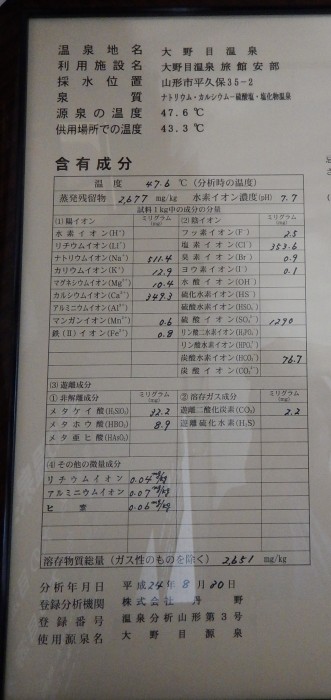 温泉地名 大野目温泉
利用施設名 大野目温泉 旅館 安部
採水位置 山形市平久保35-2
泉質 ナトリウム・カルシウム－硫酸塩・塩化物温泉
源泉の温度 47.6 ℃
供用場所での温度 43.3 ℃
含有成分
温度 47.6 ℃ (分析時の温度)
蒸発残留物 2,677 mg/kg 水素イオン濃度(pH) 7.7
試料1kg中の成分の分量
(1)陽イオン ミリグラム(mg) (2)陰イオン ミリグラム(mg)
水素イオン(H⁺) フッ素イオン(F⁻) 2.5
リチウムイオン(Li⁺) 塩素イオン(Cl⁻) 353.6
ナトリウムイオン(Na⁺) 511.4 臭素イオン(Br⁻) 0.9
カリウムイオン(K⁺) 12.9 ヨウ素イオン(I⁻) 0.1
マグネシウムイオン(Mg²⁺) 10.4 水酸イオン(OH⁻)
カルシウムイオン(Ca²⁺) 349.3 硫化水素イオン(HS⁻)
アルミニウムイオン(Al³⁺) 硫酸水素イオン(HSO₄⁻)
マンガンイオン(Mn²⁺) 0.6 硫酸イオン(SO₄²⁻) 1290
鉄(Ⅱ)イオン(Fe²⁺) 0.8 リン酸二水素イオン(H₂PO₄⁻)
リン酸水素イオン(HPO₄²⁻)
炭酸水素イオン(HCO₃⁻) 76.7
炭酸イオン(CO₃²⁻)
(3)遊離成分
①非解離成分 ミリグラム(mg) ②溶存ガス成分 ミリグラム(mg)
メタケイ酸(H₂SiO₃) 32.2 遊離二酸化炭素(CO₂) 2.2
メタホウ酸(HBO₂) 8.9 遊離硫化水素(H₂S)
メタ亜ヒ酸(HAsO₂)
(4)その他の微量成分
リチウムイオン 0.04 mg/kg
アルミニウムイオン 0.07 mg/kg
ヒ素 0.06 mg/kg
溶存物質総量(ガス性のものを除く) 2,651 mg/kg
分析年月日 平成24年8月20日
登録分析機関 株式会社 丹野
登録番号 温泉分析山形第3号
使用源泉名 大野目源泉